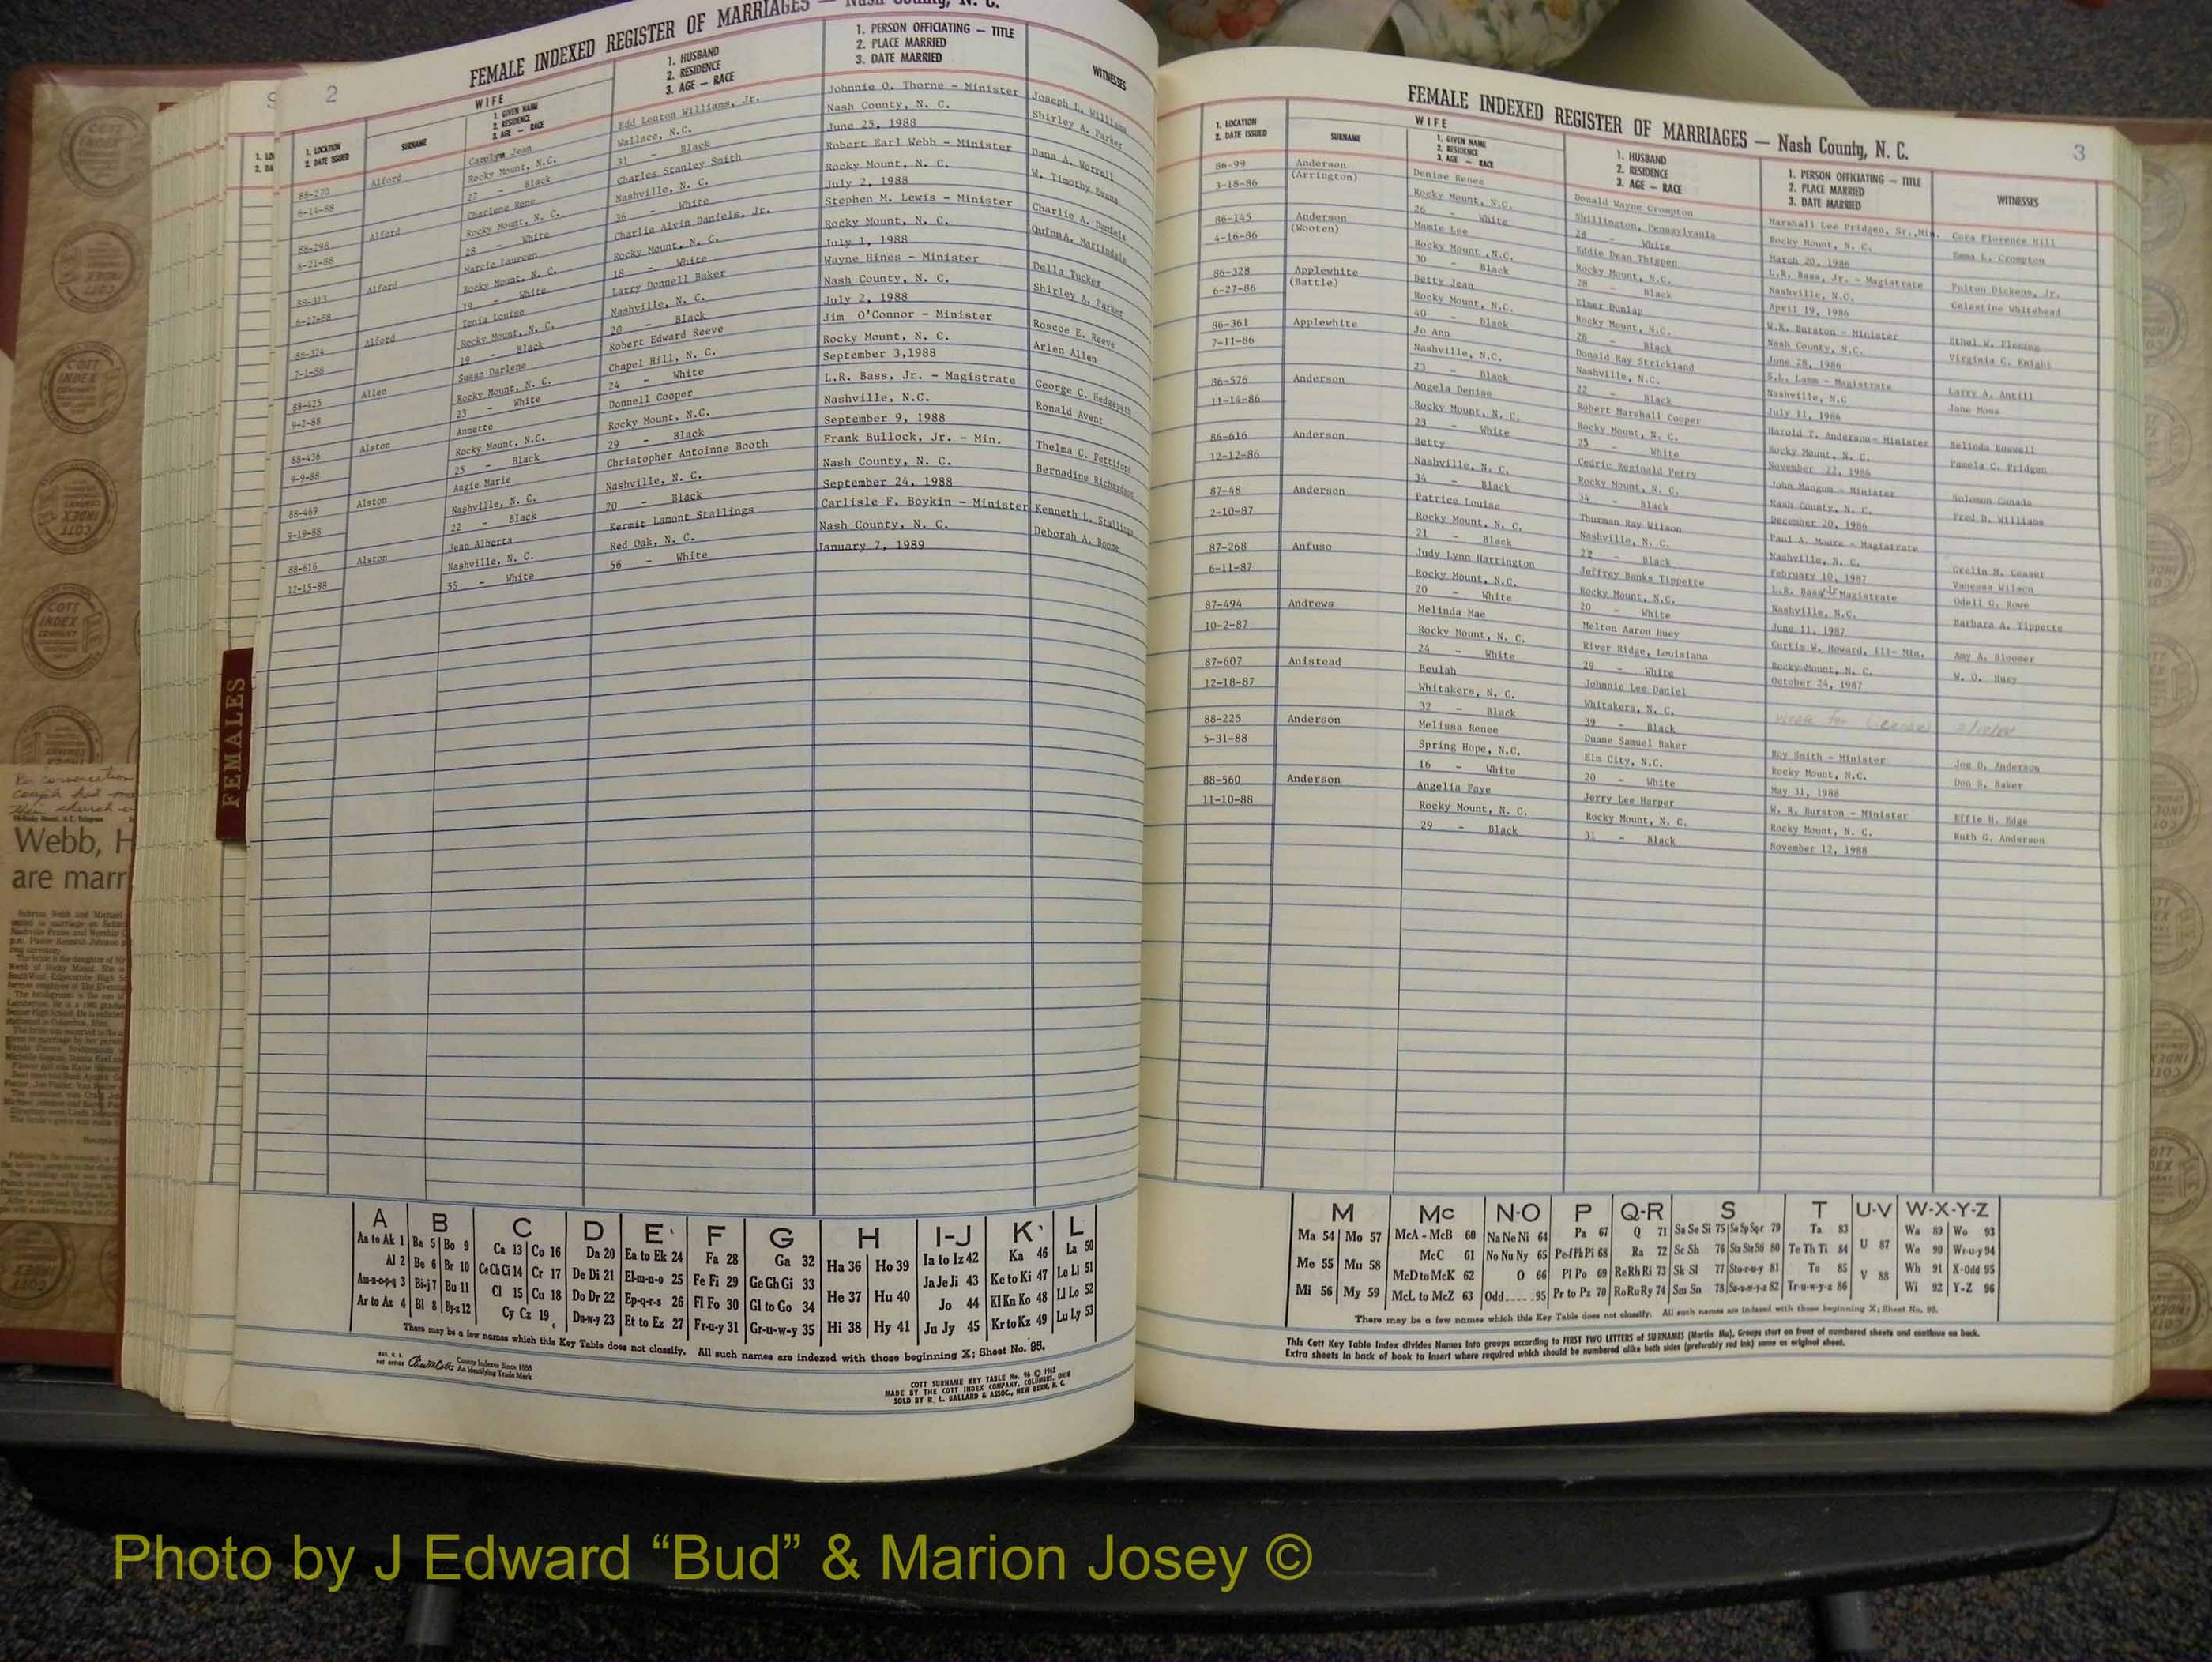 FEMALE INDEXED REGISTER OF MARRIAGES — Nash County, N. C.
2
1. LOCATION
2. DATE ISSUED
SURNAME
WIFE
1. GIVEN NAME
2. RESIDENCE
3. AGE — RACE
1. HUSBAND
2. RESIDENCE
3. AGE — RACE
1. PERSON OFFICIATING — TITLE
2. PLACE MARRIED
3. DATE MARRIED
WITNESSES
88-270 Alford Carolyn Jean Edd Lenton Williams, Jr. Johnnie O. Thorne - Minister Joseph L. Williams
6-14-88 Rocky Mount, N.C. Wallace, N.C. Nash County, N. C. Shirley A. Parker
27 - Black 31 - Black June 25, 1988
88-298 Alford Charlene Rene Charles Stanley Smith Robert Earl Webb - Minister Dana A. Worrell
6-21-88 Rocky Mount, N. C. Nashville, N. C. Rocky Mount, N. C. W. Timothy Evans
28 - White 36 - White July 2, 1988
88-313 Alford Marcie Laureen Charlie Alvin Daniels, Jr. Stephen M. Lewis - Minister Charlie A. Daniels
6-27-88 Rocky Mount, N. C. Rocky Mount, N. C. Rocky Mount, N. C. Quinn A. Martindale
19 - White 18 - White July 1, 1988
88-324 Alford Tenia Louise Larry Donnell Baker Wayne Hines - Minister Della Tucker
7-1-88 Rocky Mount, N. C. Nashville, N. C. Nash County, N. C. Shirley A. Parker
19 - Black 20 - Black July 2, 1988
88-425 Allen Susan Darlene Robert Edward Reeve Jim O'Connor - Minister Roscoe E. Reeve
9-2-88 Rocky Mount, N. C. Chapel Hill, N. C. Rocky Mount, N. C. Arlen Allen
23 - White 24 - White September 3,1988
88-436 Alston Annette Donnell Cooper L.R. Bass, Jr. - Magistrate George C. Hedgepeth
9-9-88 Rocky Mount, N.C. Rocky Mount, N.C. Nashville, N.C. Ronald Avent
25 - Black 29 - Black September 9, 1988
88-469 Alston Angie Marie Christopher Antoinne Booth Frank Bullock, Jr. - Min. Thelma C. Pettiford
9-19-88 Nashville, N. C. Nashville, N. C. Nash County, N. C. Bernadine Richardson
22 - Black 20 - Black September 24, 1988
88-616 Alston Jean Alberta Kermit Lamont Stallings Carlisle F. Boykin - Minister Kenneth L. Stallings
12-15-88 Nashville, N. C. Red Oak, N. C. Nash County, N. C. Deborah A. Boone
55 - White 56 - White January 7, 1989
FEMALES
Webb, H
are marr
A B C D E F G H I-J K L
Aa to Ak 1 Ba 5 Bo 9 Ca 13 Co 16 Da 20 Ea to Ek 24 Fa 28 Ga 32 Ha 36 Ho 39 Ia to Iz 42 Ka 46 La 50
Al 2 Be 6 Br 10 Ce Ch Ci 14 Cr 17 De Di 21 El-m-n-o 25 Fe Fi 29 Ge Gh Gi 33 He 37 Hu 40 Ja Je Ji 43 Ke to Ki 47 Le Li 51
Am-n-o-p-q 3 Bi-j 7 Bu 11 Cl 15 Cu 18 Do Dr 22 Ep-q-r-s 26 Fl Fo 30 Gl to Go 34 Hi 38 Hy 41 Jo 44 Kl Kn Ko 48 Ll Lo 52
Ar to Az 4 Bl 8 By-z 12 Cy Cz 19 Du-w-y 23 Et to Ez 27 Fr-u-y 31 Gr-u-w-y 35 Ju Jy 45 Kr to Kz 49 Lu Ly 53
There may be a few names which this Key Table does not classify. All such names are indexed with those beginning X; Sheet No. 95.
County Indexes Since 1888
An Identifying Trade Mark
COTT SURNAME KEY TABLE No. 96 © 1962
MADE BY THE COTT INDEX COMPANY, COLUMBUS, OHIO
SOLD BY R. L. BALLARD & ASSOC., NEW BERN, N. C.
FEMALE INDEXED REGISTER OF MARRIAGES — Nash County, N. C.
3
1. LOCATION
2. DATE ISSUED
SURNAME
WIFE
1. GIVEN NAME
2. RESIDENCE
3. AGE — RACE
1. HUSBAND
2. RESIDENCE
3. AGE — RACE
1. PERSON OFFICIATING — TITLE
2. PLACE MARRIED
3. DATE MARRIED
WITNESSES
86-99 Anderson Denise Renee Donald Wayne Crompton Marshall Lee Pridgen, Sr.,Min. Cora Florence Hill
3-18-86 (Arrington) Rocky Mount, N.C. Shillington, Pennsylvania Rocky Mount, N. C. Emma L. Crompton
26 - White 28 - White March 20, 1986
86-145 Anderson Mamie Lee Eddie Dean Thigpen L.R. Bass, Jr. - Magistrate Fulton Dickens, Jr.
4-16-86 (Wooten) Rocky Mount ,N.C. Rocky Mount, N.C. Nashville, N.C. Celestine Whitehead
30 - Black 28 - Black April 19, 1986
86-328 Applewhite Betty Jean Elmer Dunlap W.R. Burston - Minister Ethel W. Fleming
6-27-86 (Battle) Rocky Mount, N.C. Rocky Mount, N.C. Nash County, N.C. Virginia C. Knight
40 - Black 28 - Black June 28, 1986
86-361 Applewhite Jo Ann Donald Ray Strickland S.L. Lamm - Magistrate Larry A. Antill
7-11-86 Nashville, N.C. Nashville, N.C. Nashville, N.C Jane Moss
23 - Black 22 - Black July 11, 1986
86-576 Anderson Angela Denise Robert Marshall Cooper Harold T. Anderson- Minister Belinda Boswell
11-14-86 Rocky Mount, N. C. Rocky Mount, N. C. Rocky Mount, N. C. Pamela C. Pridgen
23 - White 25 - White November 22, 1986
86-616 Anderson Betty Cedric Reginald Perry John Mangum - Minister Solomon Canada
12-12-86 Nashville, N. C. Rocky Mount, N. C. Nash County, N. C. Fred D. Williams
34 - Black 34 - Black December 20, 1986
87-48 Anderson Patrice Louise Thurman Ray Wilson Paul A. Moore - Magistrate Grelin M. Ceasar
2-10-87 Rocky Mount, N. C. Nashville, N. C. Nashville, N. C. Vanessa Wilson
21 - Black 22 - Black February 10, 1987
87-268 Anfuso Judy Lynn Harrington Jeffrey Banks Tippette L.R. Bass Jr Magistrate Odell G. Rowe
6-11-87 Rocky Mount, N.C. Rocky Mount, N.C. Nashville, N.C. Barbara A. Tippette
20 - White 20 - White June 11, 1987
87-494 Andrews Melinda Mae Melton Aaron Huey Curtis W. Howard, III- Min. Amy A. Bloomer
10-2-87 Rocky Mount, N. C. River Ridge, Louisiana Rocky Mount, N. C. W. O. Huey
24 - White 29 - White October 24, 1987
87-607 Anistead Beulah Johnnie Lee Daniel
12-18-87 Whitakers, N. C. Whitakers, N. C. Wrote for License
32 - Black 39 - Black
88-225 Anderson Melissa Renee Duane Samuel Baker Roy Smith - Minister Joe D. Anderson
5-31-88 Spring Hope, N.C. Elm City, N.C. Rocky Mount, N.C. Don S. Baker
16 - White 20 - White May 31, 1988
88-560 Anderson Angelia Faye Jerry Lee Harper W. R. Burston - Minister Effie H. Edge
11-10-88 Rocky Mount, N. C. Rocky Mount, N. C. Rocky Mount, N. C. Ruth G. Anderson
29 - Black 31 - Black November 12, 1988
M Mc N-O P Q-R S T U-V W-X-Y-Z
Ma 54 Mo 57 McA - McB 60 Na Ne Ni 64 Pa 67 Q 71 Sa Se Si 75 So Sp Sq-r 79 Ta 83 U 87 Wa 89 Wo 93
Me 55 Mu 58 McC 61 No Nu Ny 65 Pe-f Ph Pi 68 Ra 72 Sc Sh 76 Sta Ste Sti 80 Te Th Ti 84 V 88 We 90 Wr-u-y 94
Mi 56 My 59 McD to McK 62 O 66 Pl Po 69 Re Rh Ri 73 Sk Sl 77 Sto-r-u-y 81 To 85 Wh 91 X-Odd 95
McL to McZ 63 Odd 95 Pr to Pz 70 Ro Ru Ry 74 Sm Sn 78 Su-v-w-y-z 82 Tr-u-w-y-z 86 Wi 92 Y-Z 96
There may be a few names which this Key Table does not classify. All such names are indexed with those beginning X; Sheet No. 95.
This Cott Key Table Index divides Names into groups according to FIRST TWO LETTERS of SURNAMES (Martin Ma), Groups start on front of numbered sheets and continue on back.
Extra sheets in back of book to insert where required which should be numbered alike both sides (preferably red ink) same as original sheet.
Photo by J Edward “Bud” & Marion Josey ©